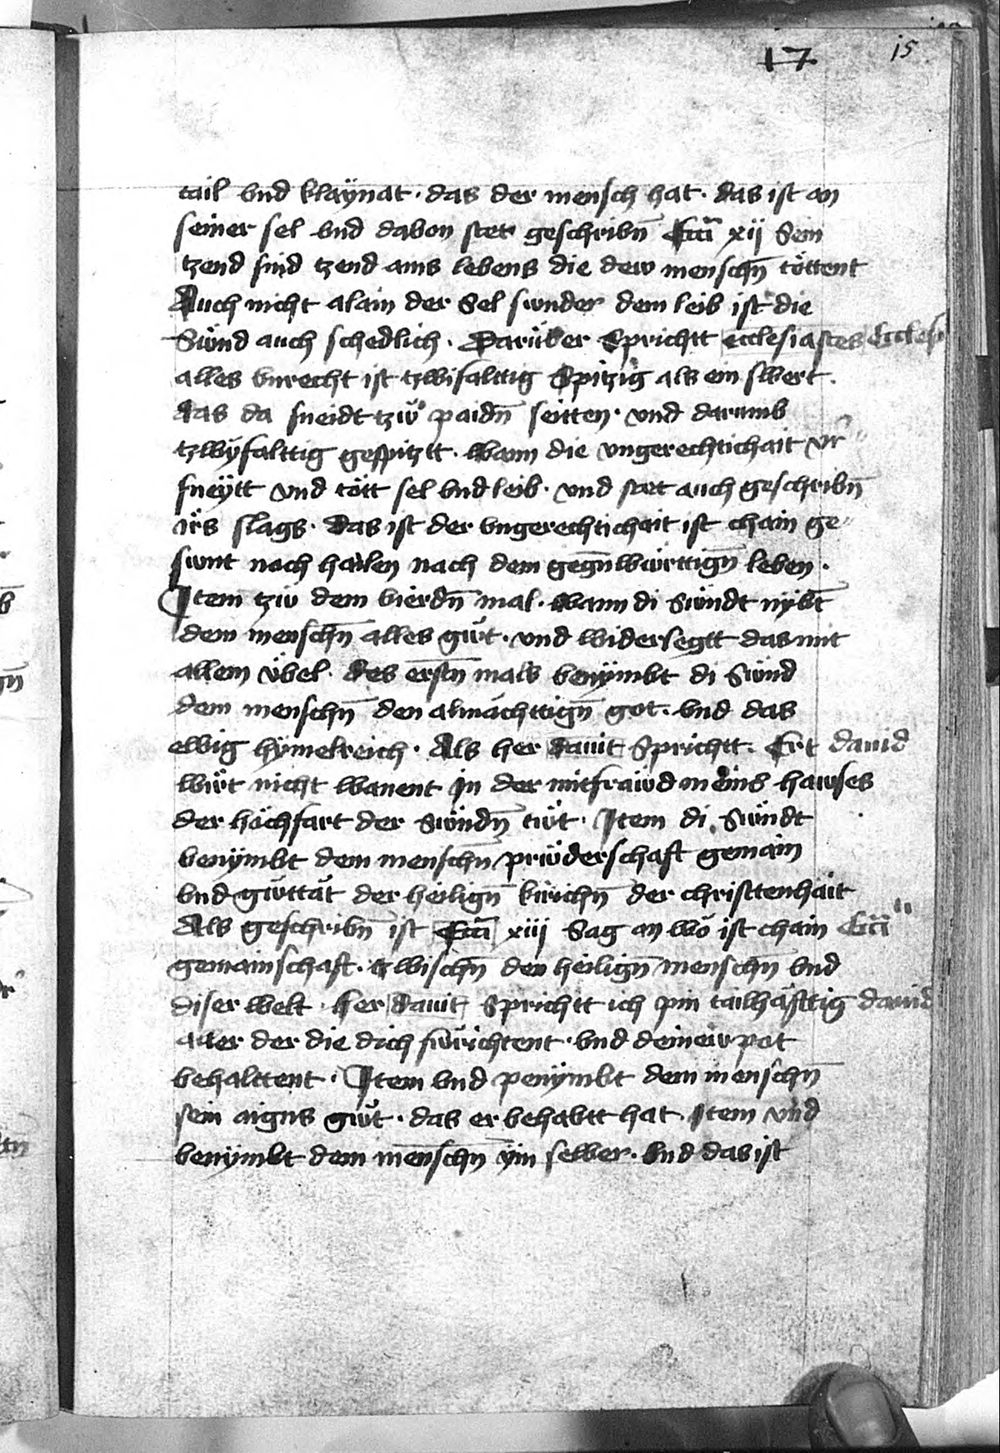 17 15
tail vnd klaÿnat · das der mensch hat · das ist an
seiner sel vnd dauon stet geschribn̄ Ecci xij Sein
tzend sind tzend ains lebens die dew menschn̄ töttent
Auch nicht alain der Sel sunder dem leib ist die
Sünd auch schedlich · Darüber Sprichtt ecclesiastes Eccles
alles vnrecht ist tzwifalttig Spitzig als ein swert ·
das da sneidt tzw paidn̄ seitten · vnd darumb
tzwÿfalttig gespitztt · wann die vngerechtichait vr
sneÿtt vnd tött sel vnd leib · vnd stet auch geschribn̄
irs slags · Das ist der vngerechtichait ist chain ge
sunt noch hailen nach dem gegn̄württign̄ leben ·
Item tzw dem vierdn̄ mal · wann di Sündt nÿbt
dem menschn̄ alles gůt · vnd widerlegtt das mit
allem übel · des erstn̄ mals benÿmbt di Sünd
dem menschn̄ den almächttign̄ got · vnd das
ewig hÿmelreich · Als her dauit Sprichtt · Er dauid
wirt nicht wanent in der mitfraẅd meins hawses
der höchfart der Sündn̄ tůt · Item di Sündt
benÿmbt dem menschn̄ prüderschaft gemain
vnd gůttät der heilign̄ kirichn̄ der christtenhait
Als geschribn̄ ist Ecci xiij Sag an wo ist chain Ecci
gemainschaft · tzwischn̄ den heilign̄ menschn̄ vnd
diser welt · her dauit Sprichtt ich pin tailhäfttig dauid
aller der die dich fürichtent · vnd deinew pot
behalttent · Item vnd penÿmbt dem menschn̄
sein aigns gůt · das er behabtt hat · Item vnd
benÿmbt dem menschn̄ ÿm selber · vnd das ist